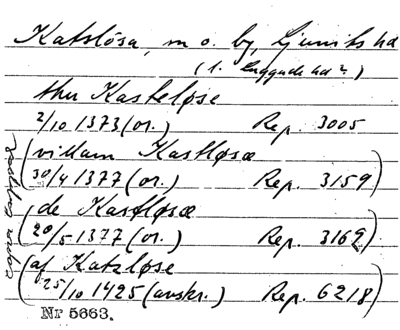 Katslösa, m o. by, Ljunits hd
(1. Luggude hd?)
thu Kasteløse
2/10 1373 (or.) Rep. 3005
(villam Kastløsæ
30/4 1377 (or.) Rep. 3159)
(de Kastløsæ
20/5 1377 (or.) Rep. 3162)
(af Katzløse
25/10 1425 (avskr.) Rep. 6218)
Nr 5663.